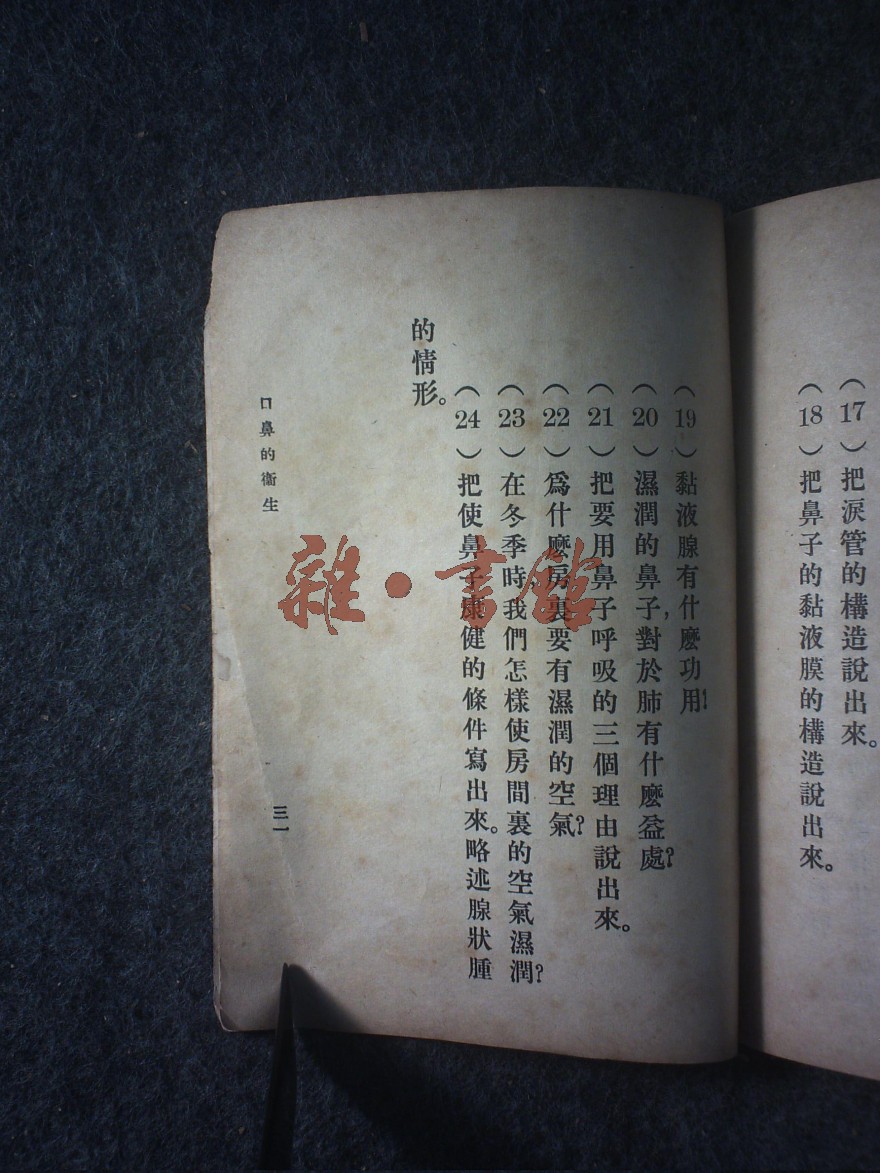 (17)把淚管的構造說出來。
(18)把鼻子的黏液膜的構造說出來。
(19)黏液腺有什麽功用?
(20)濕潤的鼻子,對於肺有什麽益處?
(21)把要用鼻子呼吸的三個理由說出來。
(22)爲什麽房裏要有濕潤的空氣?
(23)在冬季時,我們怎樣使房間裏的空氣濕潤?
(24)把使鼻子康健的條件寫出來。略述腺狀腫
的情形。
口鼻的衞生
三一
雜·書館